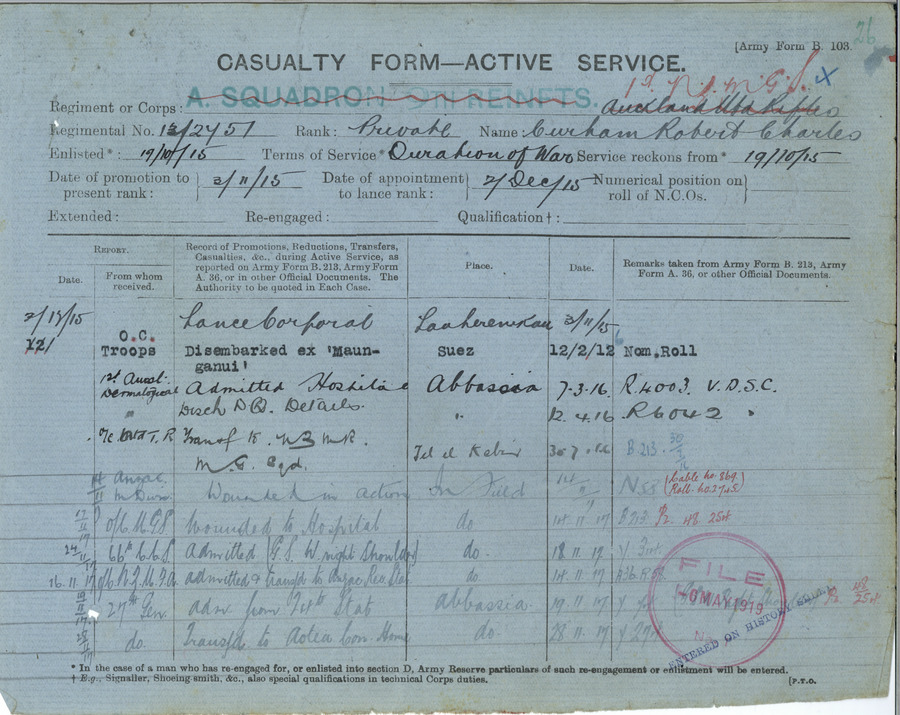 26
[Army Form B. 103.
CASUALTY FORM—ACTIVE SERVICE.
1st N.Z.M.G.S. X
A. SQUADRON 9TH REINFTS.
Regiment or Corps: Auckland Mtd Rifles
Regimental No. 13/2451 Rank: Private Name: Curham Robert Charles
Enlisted*: 19/10/15 Terms of Service* Duration of War Service reckons from* 19/10/15
Date of promotion to present rank: 3/11/15 Date of appointment to lance rank: 2/Dec/15 Numerical position on roll of N.C.Os.
Extended: Re-engaged: Qualification†:
REPORT.
Date. From whom received.
Record of Promotions, Reductions, Transfers, Casualties, &c., during Active Service, as reported on Army Form B. 213, Army Form A. 36, or in other Official Documents. The Authority to be quoted in Each Case.
Place.
Date.
Remarks taken from Army Form B. 213, Army Form A. 36, or other Official Documents.
Lance Corporal 3/11/15
O.C. Troops Disembarked ex 'Maunganui' Suez 12/2/12 Nom. Roll
1st Aust. Dermatological Admitted Hospital Abbassia 7-3-16 R.4003. V.D.S.C.
" Disch Details. " 12.4.16 R6042
T.R Transf to NZ M.R. M.G. Sqd. Tel el Kebir 30 7 B.213. 30/7
Anzac Wounded in action In Field (Cable no. 869. Roll. no. 3745)
O/C M.G.S Wounded to Hospital do 14.11.17 B213 48 25H
24/11 66th C.C.S Admitted (G.S.W. right Shoulder) do. 18 11 17
16.11.17 admitted & transfd to Anzac Rec. Stat do 14.11.17
27th Gen adm from Stat Abbassia 19.11.17 48 25H
do. Transfd to Aotea Con. Home do. 28 11 17
FILE
MAY 1919
No.
ENTERED ON HISTORY
* In the case of a man who has re-engaged for, or enlisted into section D, Army Reserve particulars of such re-engagement or enlistment will be entered.
† E.g., Signaller, Shoeing-smith, &c., also special qualifications in technical Corps duties.
[P.T.O.